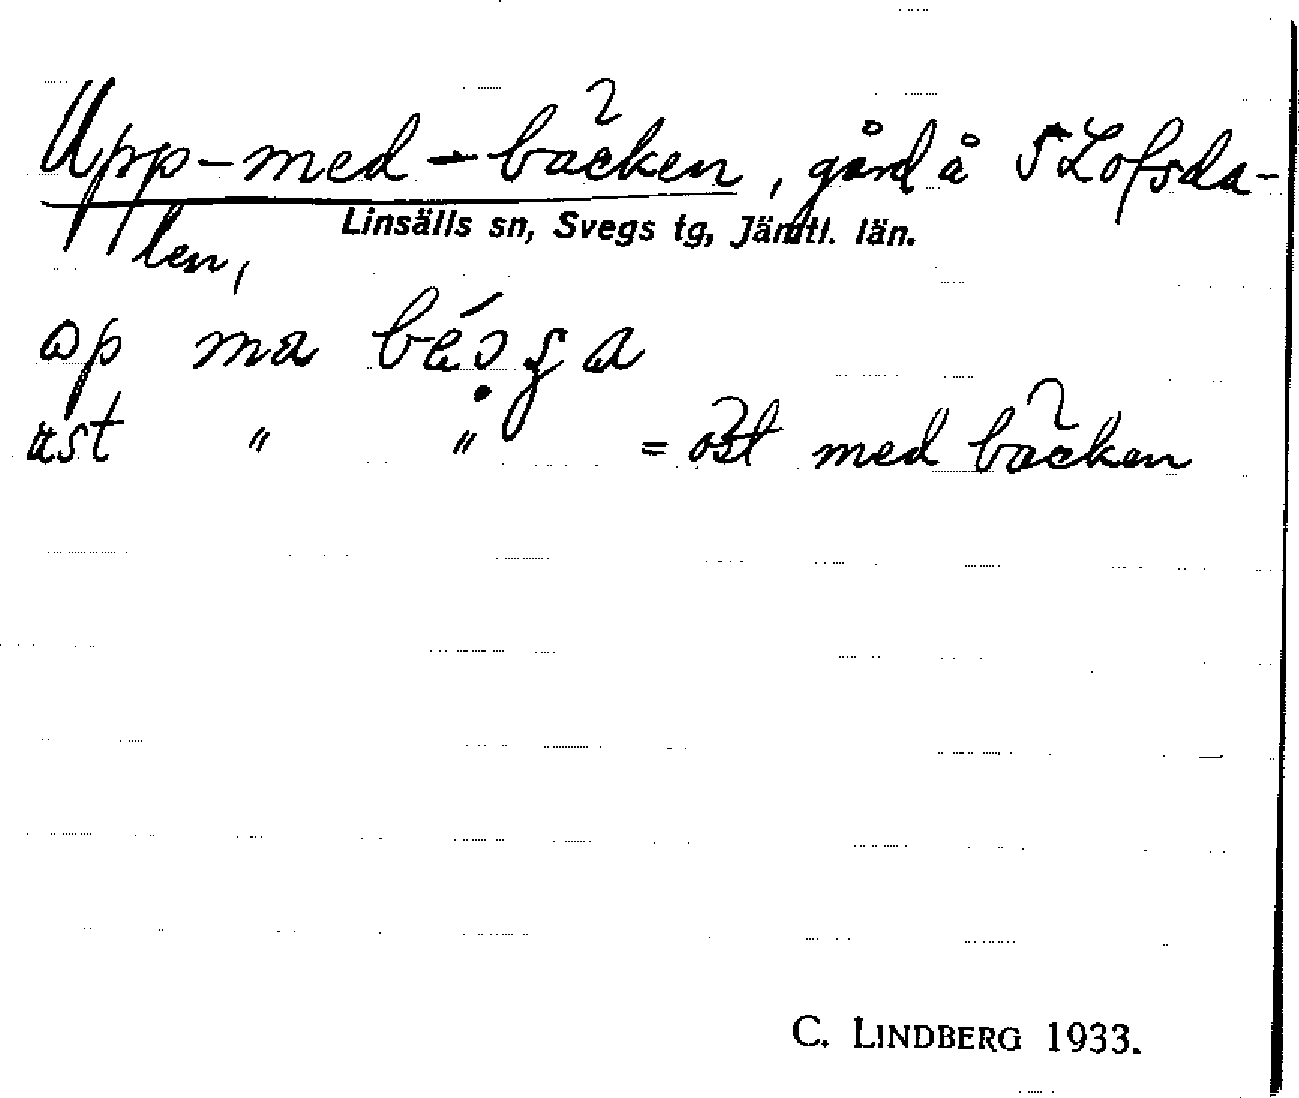 Upp-med-bäcken, gård å S Lofsda-
Linsälls sn, Svegs tg, Jämtl. län.
len,
ɷp ma
äst " " = öst med bäcken
C. LINDBERG 1933.